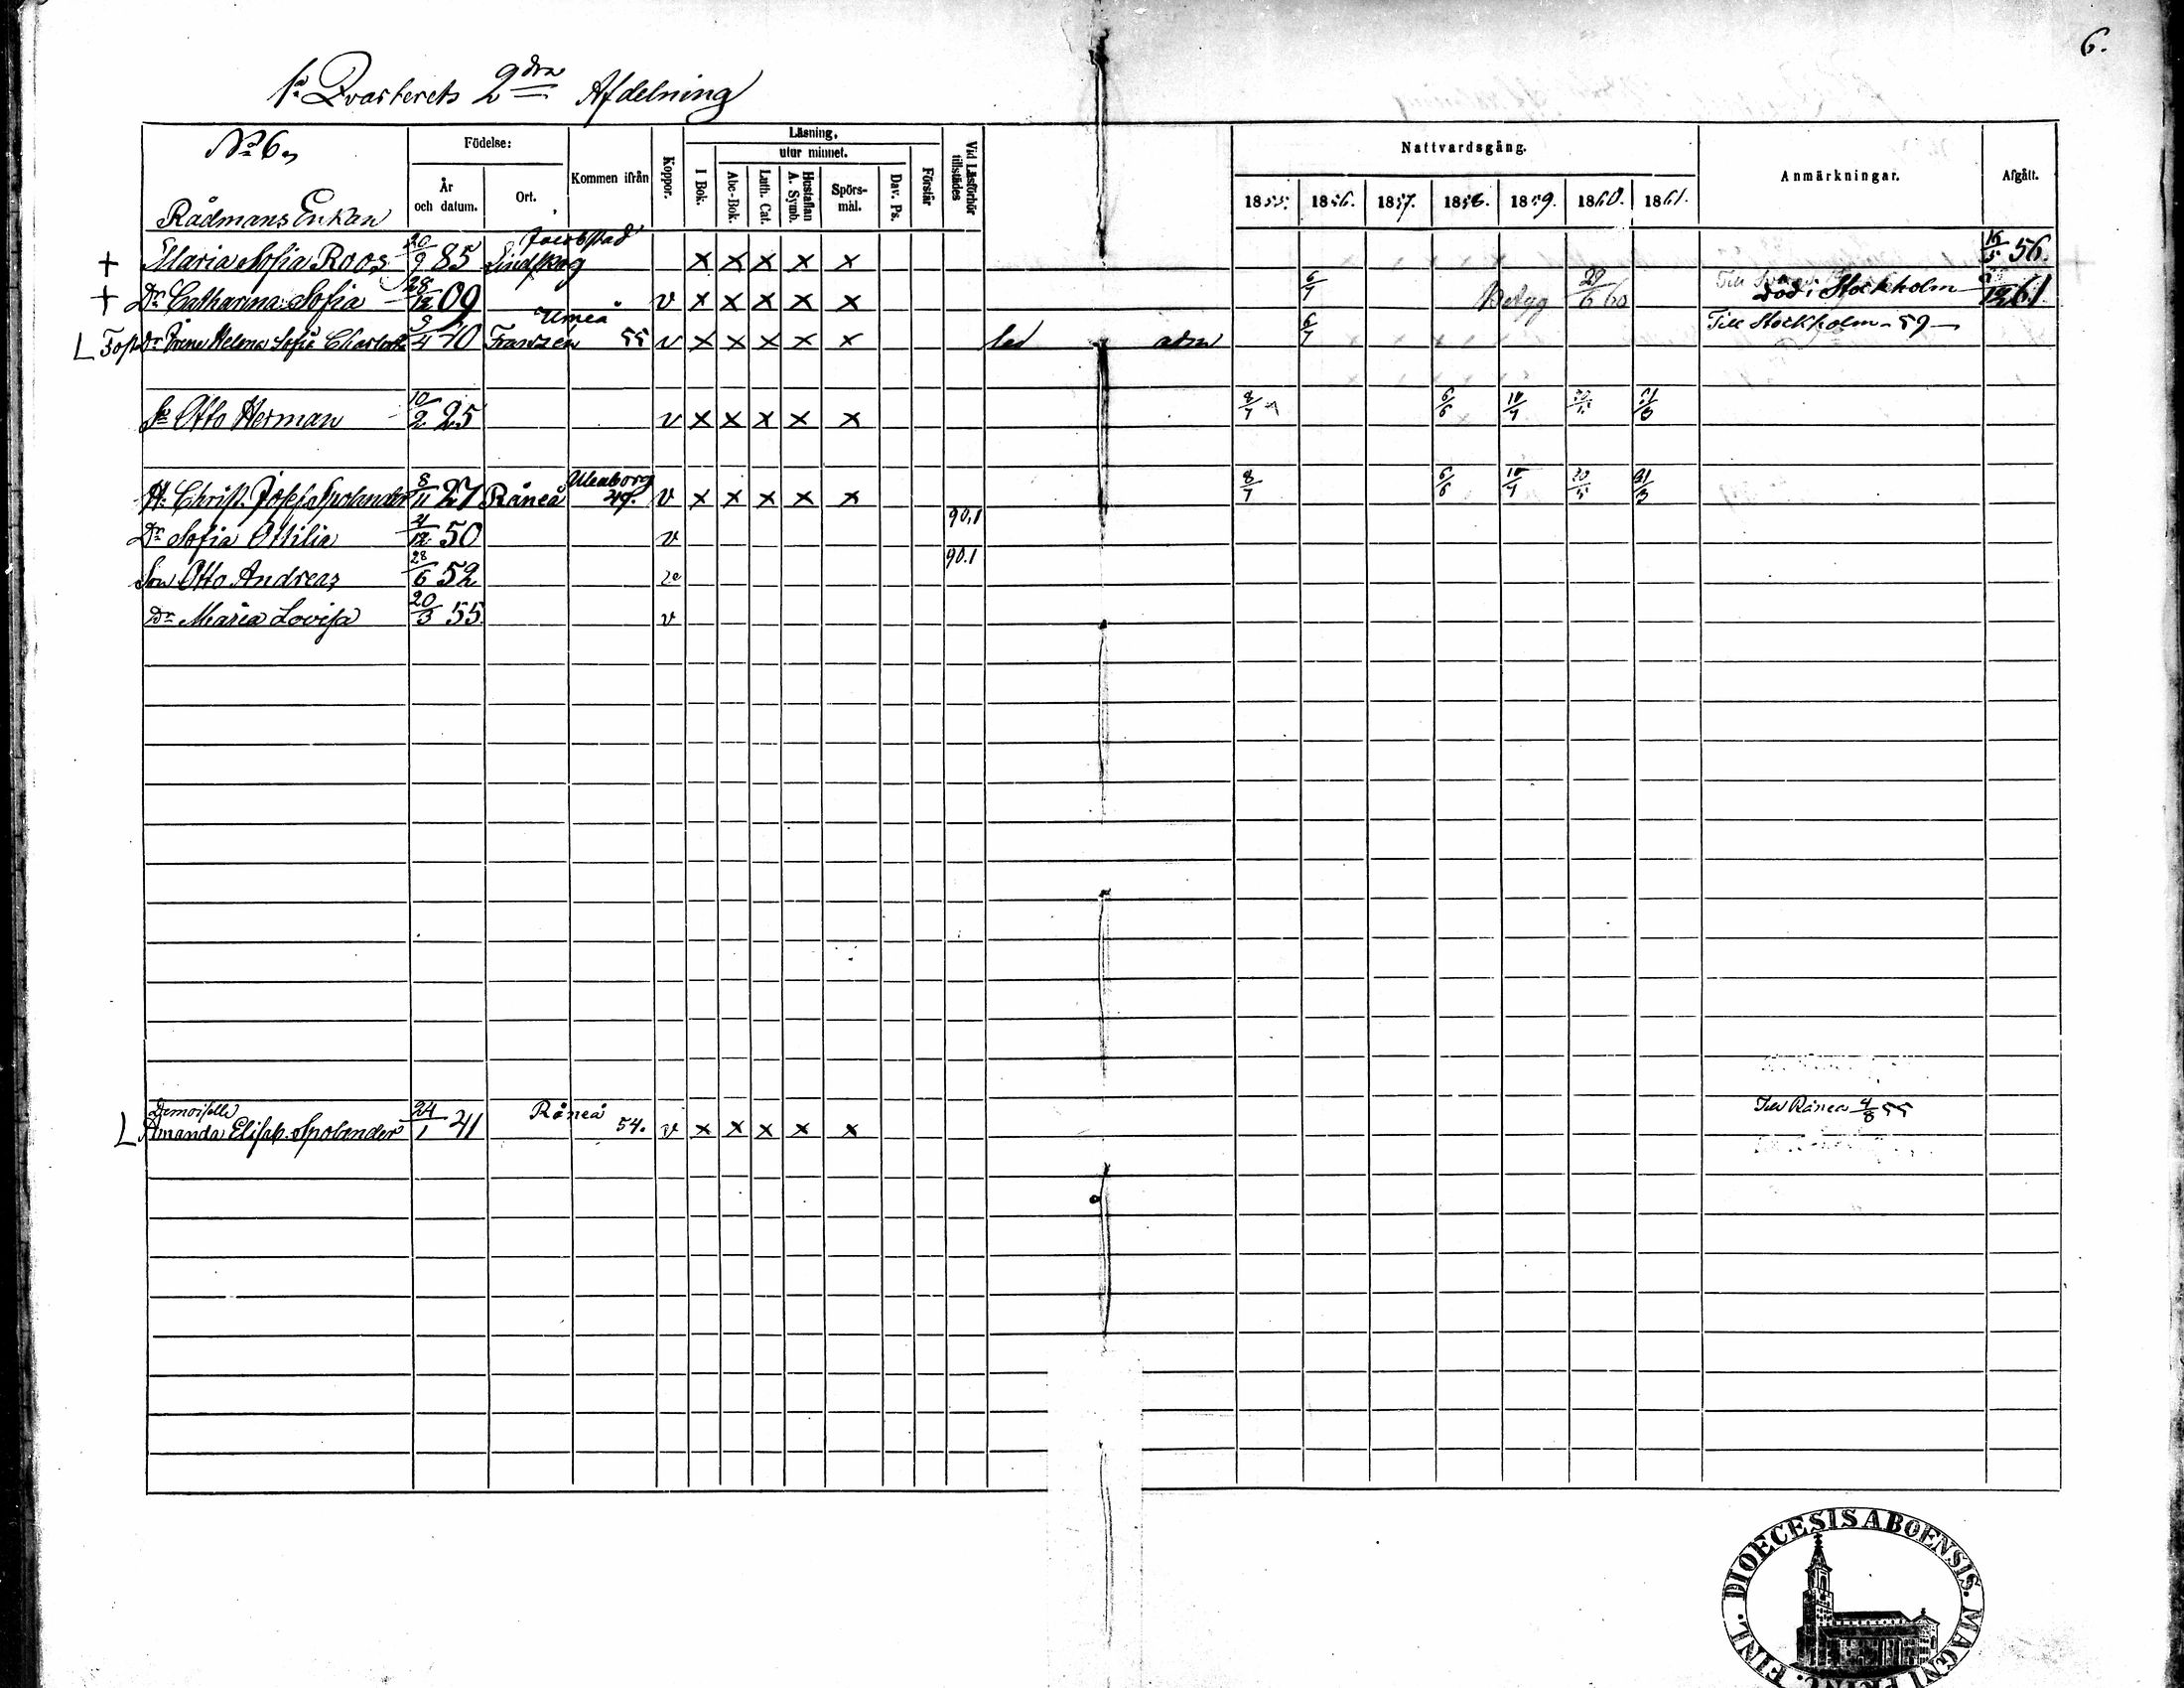 6.
1a Qvarterets 2dra Afdelning
No 6.
Rådmans Enkan
Födelse:
År och datum.
Ort.
Kommen ifrån
Koppor.
Läsning,
utur minnet.
I Bok.
Abc-Bok.
Luth. Cat.
Hustaflan A. Symb.
Spörs-mål.
Dav. Ps.
Förstår
Vid Läsförhör tillstädes
Nattvardsgång.
1855. 1856. 1857. 1858. 1859. 1860. 1861.
Anmärkningar.
Afgått.
+ Maria Sofia Roos 9 85 Jacobstad Lindskog x x x x x 5 56.
+ Dr Catharina Sofia 28/12 09 v x x x x x 6/7 Betyg 29/6 60 död i Stockholm 12 61
L Fost Dr Irene Helena Sofia Charlotta 3/4 40 Umeå Franzén 55 v x x x x x led adm 6/7 Till Stockholm 59
So Otto Herman 10/2 25 v x x x x x 8/7 6/6 10/7 31/3
H. Christ. Josefa Spolander 8/11 27 Råneå Uleaborg 49. v x x x x x 8/7 6/6 10/7 31/3
Dr Sofia Ottilia 4/12 50 v 90.1
Son Otto Andreas 28/6 52 v 90.1
Dr Maria Lovisa 20/3 55 v
Demoiselle
L Amanda Elisab. Spolander 24/1 41 Råneå 54. v x x x x x Till Råneå 4/8 55
DIOECESIS ABOENSIS. MAGNI PRINC. FINL.